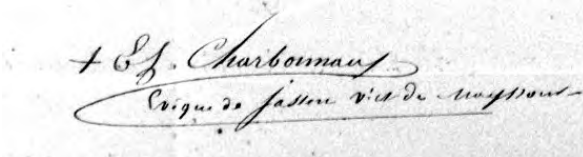 + Et. Charbonnaux
Évêque de Jassen vict de Mayssour